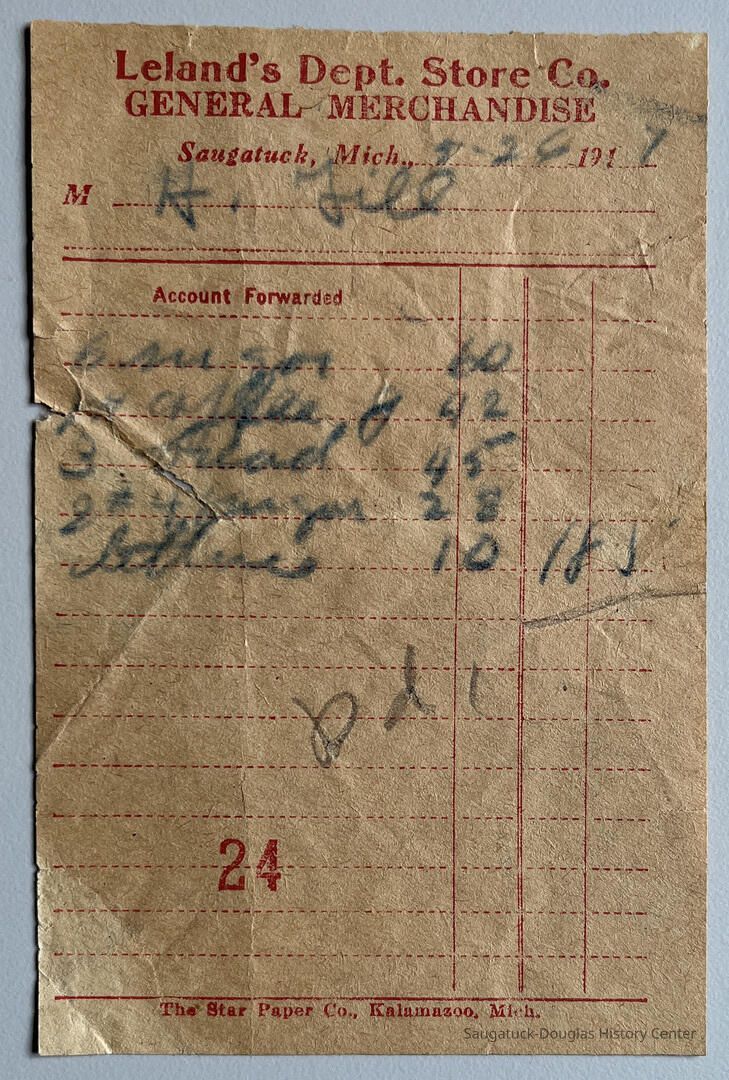 Leland's Dept. Store Co.
GENERAL MERCHANDISE
Saugatuck, Mich., 9-26 1917
M H. Gill
Account Forwarded
6 sugar 60
coffee 42
3 bread 45
2 # sugar 28
10 185
Pd
24
The Star Paper Co., Kalamazoo, Mich.
Saugatuck-Douglas History Center